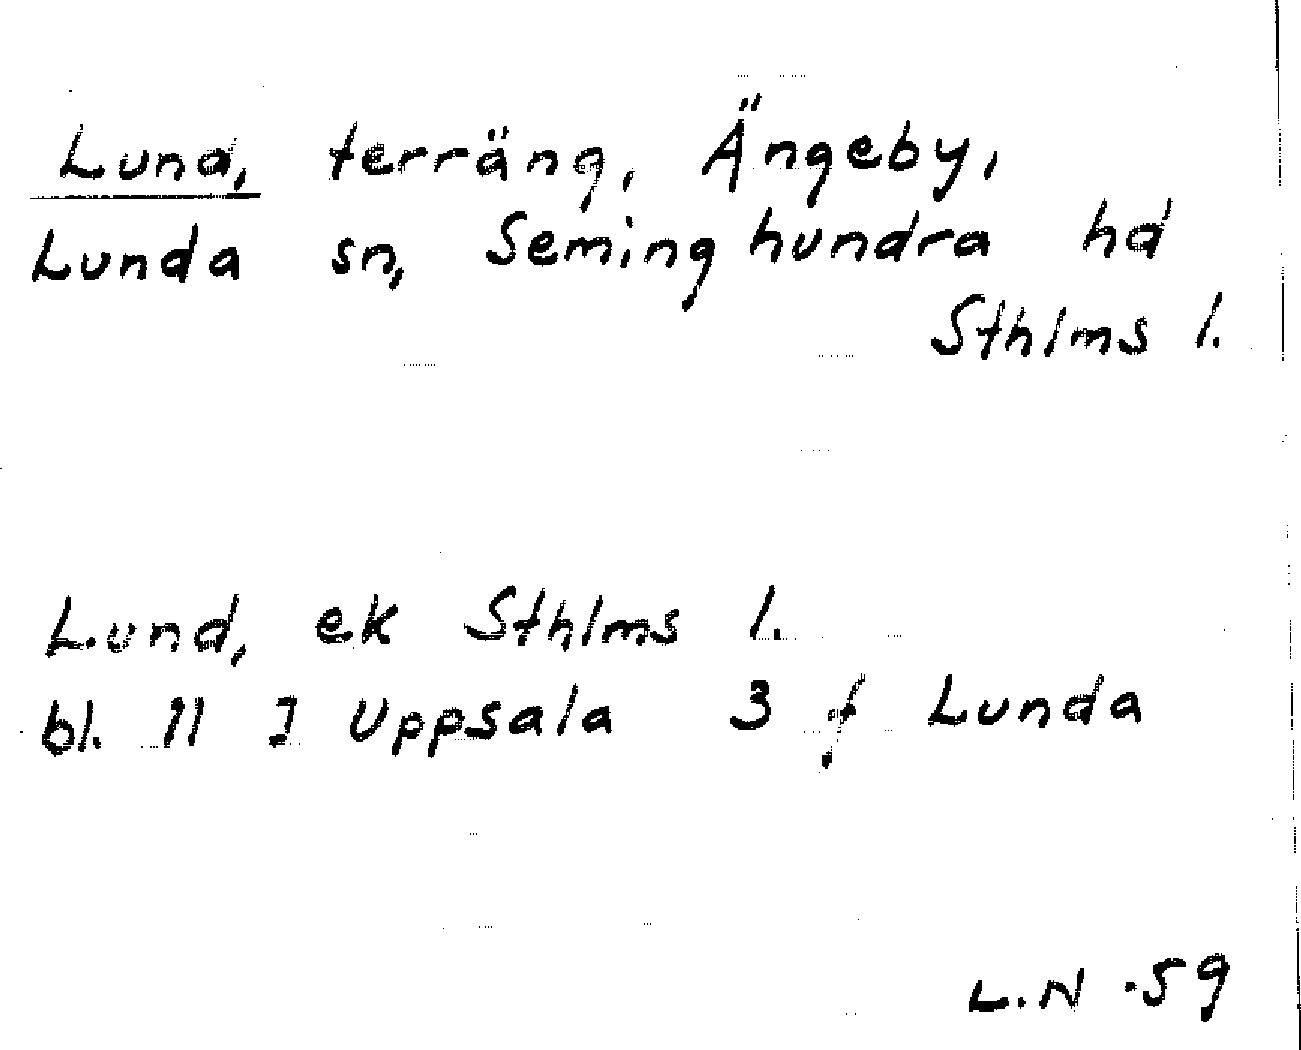 Lund, terräng, Ängeby,
Lunda sn, Seminghundra hd
Sthlms l.
Lund, ek Sthlms l.
bl. 11 I Uppsala 3 f Lunda
L.N -59